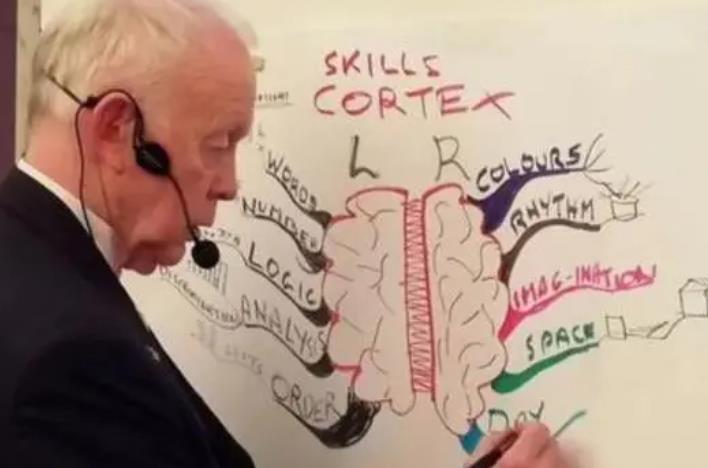 SKILLS
CORTEX
L R
WORDS
NUMBER
LOGIC
ANALYSIS
ORDER
COLOURS
RHYTHM
IMAG-INATION
SPACE
DAY